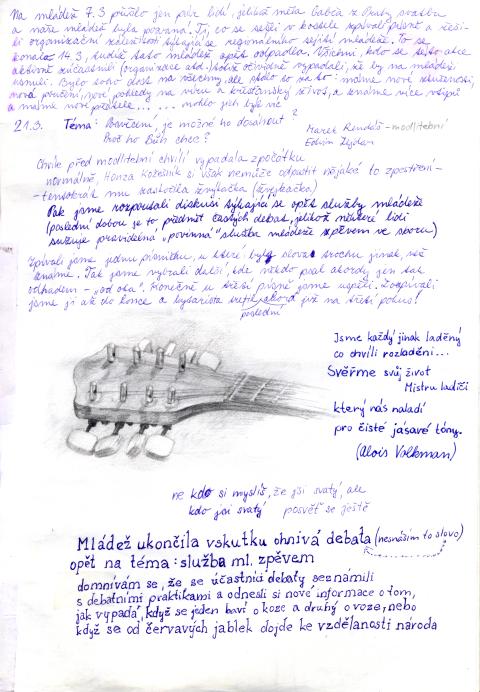 Na mládež 7.3 přišlo jen pár lidí, jelikož měla Gabča z Rusty svatbu
a naše mládež byla pozvána. Ti, co se sešli v kostele zpívali písně a řeši-
li organizační záležitosti týkající se regionálního sejití mládeže. To se
konalo 14.3, tudíž tato mládež opět odpadla. Všichni, kdo se této akce
aktivně zúčastnili (organizace atd.) totiž očividně vypadali, že by na mládež
neměli. Bylo toho dost na všechny, ale stálo to za to - máme nové zkušenosti,
nová poučení, nové pohledy na víru a křesťanský život, a známe více vtipů
a máme nové přátele..... mohlo jich být víc
21.3. Téma: Posvěcení, je možné ho dosáhnout?
Proč ho Bůh chce?
Marek Rendoš - modlitební
Edita Zejdan
Chvíle před modlitební chvílí vypadala zpočátku
normálně, Honza Kožešník si však nemůže odpustit nějaké to zpestření -
- tentokrát mu zaskočila žvýkačka (žvejkačka)
Pak jsme rozpoutali diskuši týkající se opět služby mládeže
(poslední dobou je to předmět častých debat, jelikož některé lidi
sužuje pravidelná „povinná" služba mládeže zpěvem ve sboru)
Zpívali jsme jednu písničku, u které byla slova trochu jinak, než
známe. Tak jsme vybrali další, kde někdo psal akordy jen tak
odhadem - „od oka". Konečně u třetí písně jsme uspěli. Zazpívali
jsme ji až do konce a kytarista trefil akord již na třetí pokus!
poslední
Jsme každý jinak laděný
co chvíli rozladěni...
Svěřme svůj život
Mistru ladiči
který nás naladí
pro čisté jásavé tóny.
(Alois Volkman)
ne kdo si myslíš, že jsi svatý, ale
kdo jsi svatý posvěť se ještě
Mládež ukončila vskutku ohnivá debata (nesnáším to slovo)
opět na téma: služba ml. zpěvem
domnívám se, že se účastníci debaty seznámili
s debatními praktikami a odnesli si nové informace o tom,
jak vypadá, když se jeden baví o koze a druhý o voze, nebo
když se od červavých jablek dojde ke vzdělanosti národa